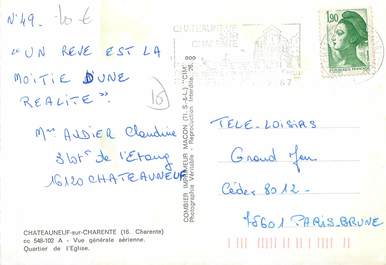 N°49. 10 €
"UN REVE EST LA
MOITIE D'UNE
REALITE".
10
Mme AUDIER Claudine
3 lot' de l'Etang
16120 CHATEAUNEUF
CHATEAUNEUF-sur-CHARENTE (16. Charente)
cc 548-102 A - Vue générale aérienne.
Quartier de l'Eglise.
COMBIER IMPRIMEUR MACON (71 S.-&-L.) "CIM"
Photographie Véritable - Reproduction Interdite.
CHATEAUNEUF
CHARENTE
87
1,90
TELE-LOISIRS
Grand Jeu
Cédex 8012-
75601 PARIS-BRUNE